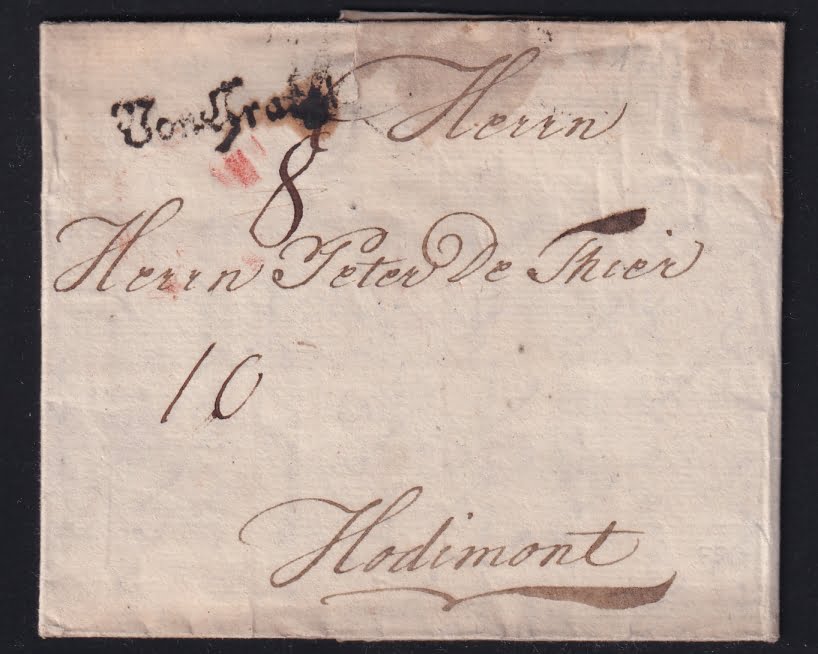 Von Gratz
Herrn
8
Herrn Peter De Thier
10
Hodimont